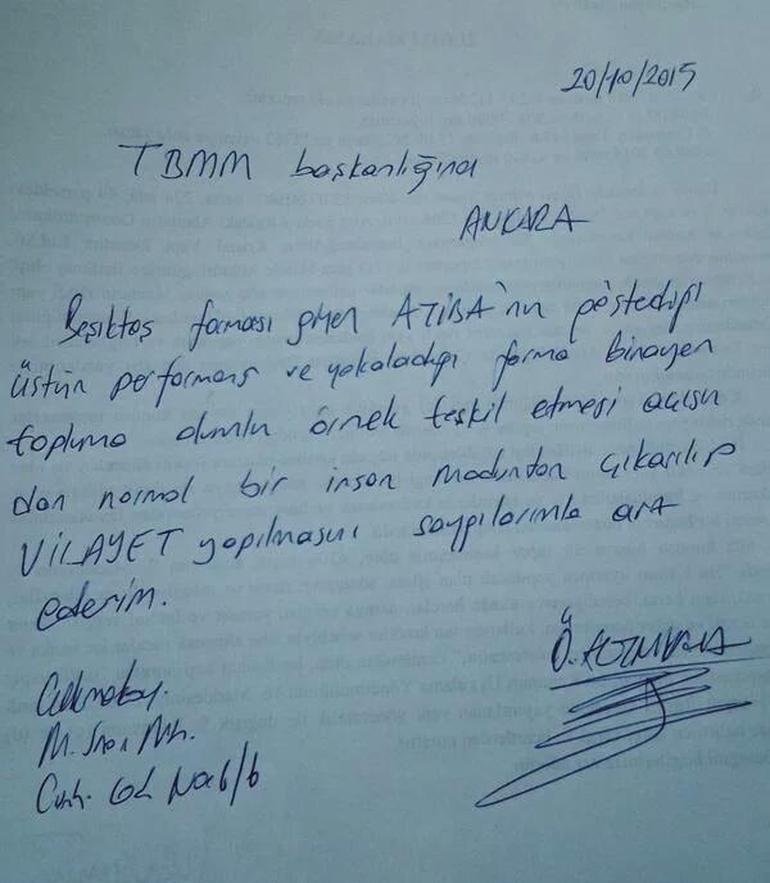 20/10/2015
TBMM başkanlığına
ANKARA
Beşiktaş forması giyen ATİBA'nın gösterdiği
üstün performans ve yakaladığı forma binayen
topluma olumlu örnek teşkil etmesi açısın
dan normal bir insan modundan çıkarılıp
VİLAYET yapılmasını saygılarımla arz
ederim.
Ö.
M. Mh.
No 6/6